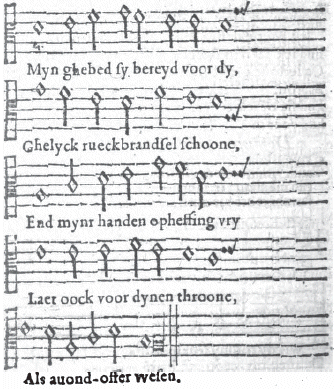 Myn ghebed sy bereyd voor dy,
Ghelyck rueckbrandsel schoone,
End mynr handen opheffing vry
Laet oock voor dynen throone,
Als auond-offer wesen.